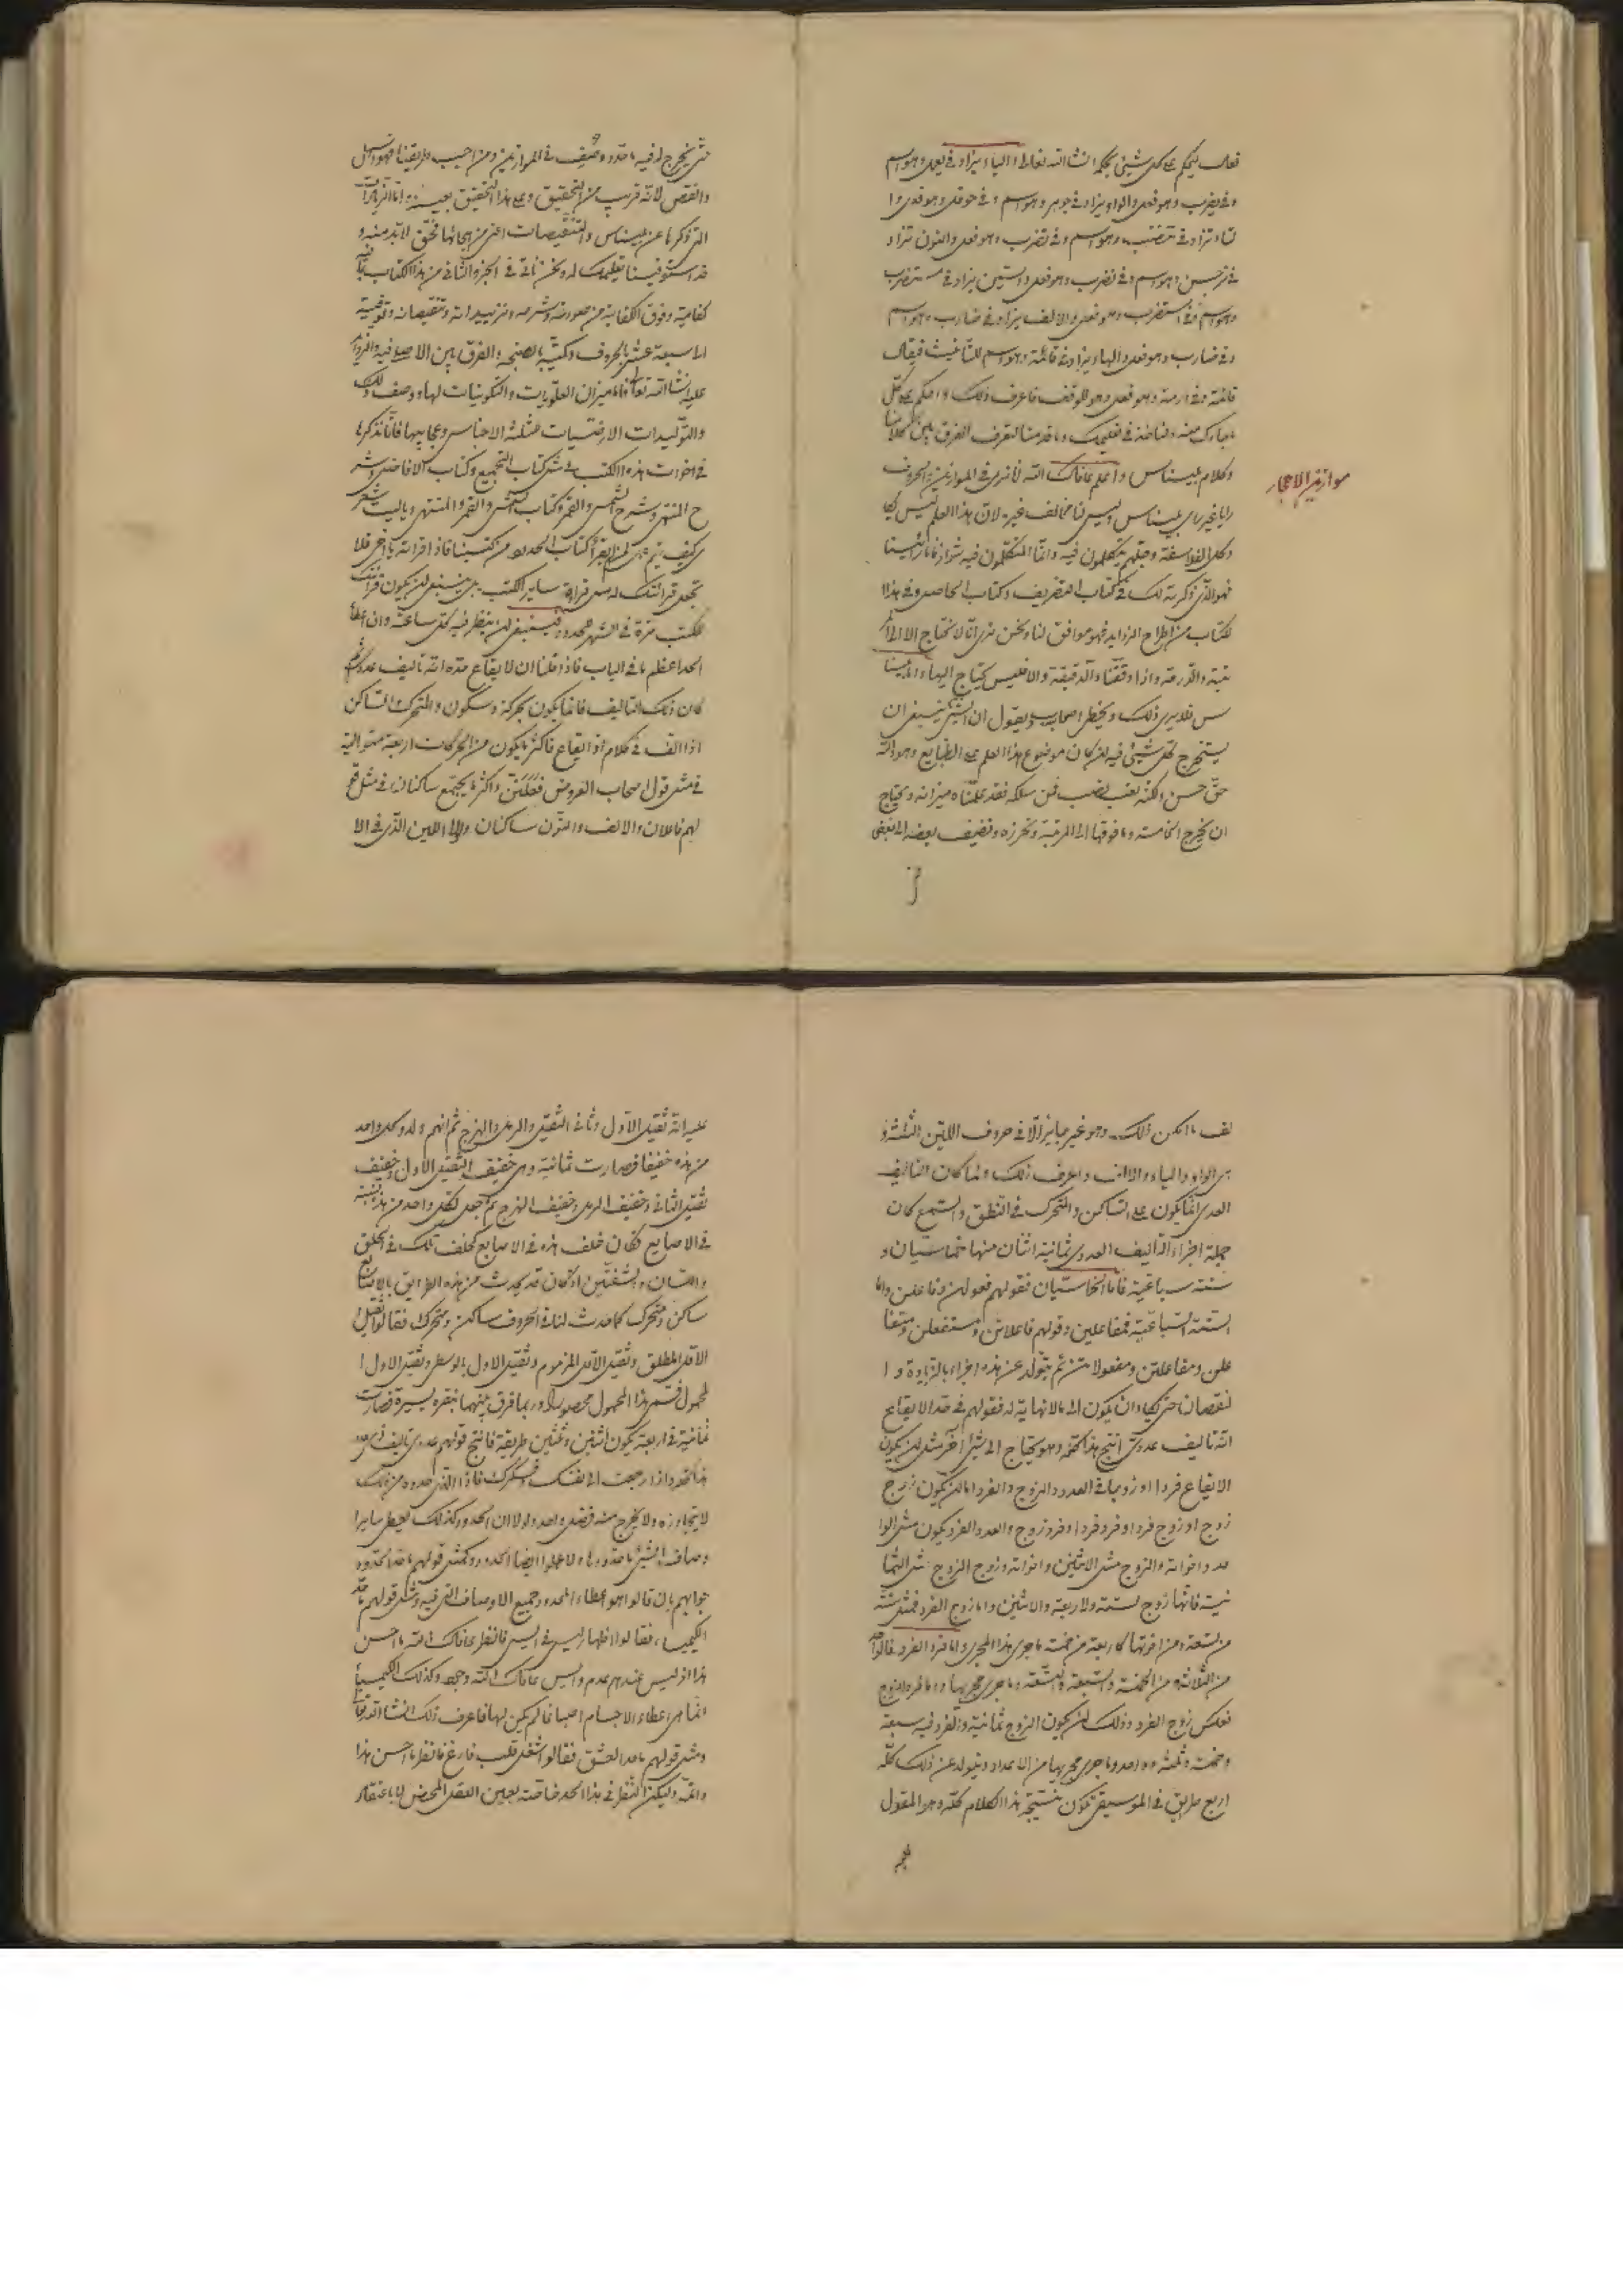 تعالى ليحكم على كل شيئ بحكمه انشا الله تعالى والياء يزاد في يعمل وهو اسم
وفي يضرب وهو فعل والواو يزاد في جوهر وهو اسم وفي حوقل وهو فعل وا
لتاء تزاد في تنضب وهو اسم وفي تضرب وهو فعل والنون تزاد
في نرجس وهو اسم وفي نضرب وهو فعل والسين يزاد في مستضرب
وهو اسم وفي استضرب وهو فعل والالف يزاد في ضارب وهو اسم
وفي ضارب وهو فعل والهاء يزاد في قائمة وهو اسم للتأنيث فيقال
قائمة وفي ارمه وهو فعل وهو للوقف فاعرف ذلك واحكم على كل
وكلام بليناس واعلم عافاك الله لا نرى في الموازين والحروف
موازين الاحجار
رايا غير راي بليناس وليس لنا مخالف غيره لان هذا العلم ليس كما
وكل الفلاسفة وجلهم يتكلمون فيه وانما المتكلمون فيه شواذ فاما راينا
فهو الذي ذكرته لك في كتاب التصريف وكتاب الحاصل وفي هذا
الكتاب من اطراح الزوايد فهو موافق لنا ونحن نرى انا لا نحتاج الا الى المر
تبة والدرجة واذا دققنا والدقيقة والا فليس نحتاج اليها واما بلينا
س فلا يرى ذلك ويخطئ اصحابه ويقول ان الشيئ ينبغي ان
يستخرج كل شيئ فيه اذ كان موضوع هذا العلم على الطبايع وهو والله
حق حسن لكنه تعب نصب فمن سلكه فقد علمناه ميزانه ويحتاج
ان يخرج الخامسة وما فوقها الى المرتبة ونحرزه ونضيف بعضه الى بعض
حتى يخرج له فيه ما حدد وصف في الموازين ومن احب طريقنا فهو اسهل
وانقص لانه قريب من التحقيق وعلى هذا التحقيق بعينه واما الزيادات
التي ذكرناها عن بليناس والتنقيصات اعني من هجائها فحق لابد منه و
قد استوفينا تعليمك له ونحن ناتي في الجزو الثاني من هذا الكتاب بما فيه
كفاية وفوق الكفاية من صورته وشرحه وتزييداته وتنقيصاته وتوقيته
الى سبعة عشر بالحروف وكميته بالصنجه والفرق بين الاصلية والزوائد
عليه انشا الله تعالى واما ميزان العلويات والتكوينات لها ووصف ذلك
والتوليدات الارضيات مثلثة الاجناس وعجائبها فانا نذكرها
في اخوات هذه الكتب في مثل كتاب التجميع وكتاب الافاضل وشر
ح المنتهى وشرح الشمس والقمر وكتاب الشمس والقمر والمنتهى وياليت شعر
ي كيف يتم عمل لمن لم يقرأ كتاب الحدود من كتبنا فاذا قراته يا اخي فلا
تجعل قرائتك له مثل قراءة ساير الكتب بل ينبغي ان يكون قرائتك
للكتب مرة في الشهر والحدود فينبغي ان ينظر فيه كل ساعة وان اعطاء
الحد اعظم ما في الباب فاذا قلنا ان الايقاع حده انه تاليف عددي ثم
كان ذلك التاليف فانما يكون بحركة وسكون والمتحرك والساكن
اذا الف في كلام او ايقاع فاكثر ما يكون من الحركات اربعة متوالية
في مثل قول اصحاب العروض فعلتن واكثر ما يجتمع ساكنان في مثل قو
لهم فاعلان والالف والنون ساكنان ولولا اللين الذي في الا
لف ما امكن ذلك وهو غير جايز الا في حروف اللين الثلثة و
هي الواو والياء والالف واعرف ذلك ولما كان التاليف
العددي انما يكون على الساكن والمتحرك في النطق والسمع كان
جملة اجزاء التاليف العددي ثمانية اثنان منها خماسيان و
ستة سباعية فاما الخماسيان فقولهم فعولن وفاعلن واما
الستة السباعية فمفاعلين وقولهم فاعلاتن ومستفعلن ومتفا
علن ومفاعلتن ومفعولات ثم يتولد عن هذه اجزاء بالزيادة و ا
لنقصان حتى يكاد ان يكون الى ما لا نهاية له فقولهم في حد الايقاع
انه تاليف عددي انتج هذا كله وهو يحتاج الى شيئ آخر مثل ان يكون
الايقاع فردا او زوجا في العدد والزوج والفرد اما ان يكون زوج
زوج او زوج فرد او فرد فرد او فرد زوج والعدد الفرد يكون مثل الوا
حد واخواته والزوج مثل الاثنين واخواته وزوج الزوج مثل الثما
نية فانها زوج لستة ولاربعة والاثنين واما زوج الفرد فمثل ستة
من الثلاثة ومن الخمسة والسبعة والتسعة وما جرى مجريها واما فرد الزوج
فعكس زوج الفرد وذلك ان يكون الزوج ثمانية والفرد فيه سبعة
وخمسة وثلثة وواحد وما جرى مجريها من الاعداد ويتولد عن ذلك كله
اربع طرايق في الموسيقى تكون نتيجة هذا الكلام كله وهو المقول
عليه انه ثقيل الاول وثاني الثقيل والرمل والهزج ثم انهم ولدوا كل واحد
من هذه خفيفا فصارت ثمانية وهي خفيف الثقيل الاول وخفيف
ثقيل الثاني وخفيف الرمل وخفيف الهزج ثم جعل لكل واحد من هذه نسبة
في الاصابع فكان خلف هذه في الاصابع كخلف تلك في الحلق
واللسان والشفتين اذ كان قد يحدث من هذه الطرايق بالاصابع
ساكن ومتحرك كما حدث لنا في الحروف ساكن ومتحرك فقالوا الثقيل
الاول المطلق وثقيل الاول المزموم وثقيل الاول بالوسطى وثقيل الاول ا
لمحمول فسم هذا المحمول محصورا وربما فرق بينهما بنقرة يسيرة فصارت
ثمانية في اربعة يكون اثنين وثلثين طريقة فانتج قولهم عددي تاليف عددي
هذا كله واذا رجعت الى نفسك وفكرك فاذا الذي حدوه من ذلك
لا يتجاوزه ولا يخرج منه فصل واحد ولولا ان الحدود كذلك يعطي ساير ا
وصاف الشيئ ما حدوده ولا عملوا ايضا الحدود وكمثل قولهم ما حد الحدود
جوابهم بان قالوا هو اعطاء المحدود جميع الاوصاف التي فيه ومثل قولهم ما حد
الكيميا، فقالوا اظهار ليس في ايس فانظر عافاك الله ما احسن
هذا اذ ليس عندهم عدم وايس عافاك الله وجود وكذلك الكيميا
انما هي اعطاء الاجسام اصباغا لم يكن لها فاعرف ذلك انشا الله تعالى
ومثل قولهم ما حد العشق فقالوا شغل قلب فارغ فانظر ما احسن هذا
واتمه وليكن النظر في هذا الحد خاصة بعين العقل المحض لا باعتقاد